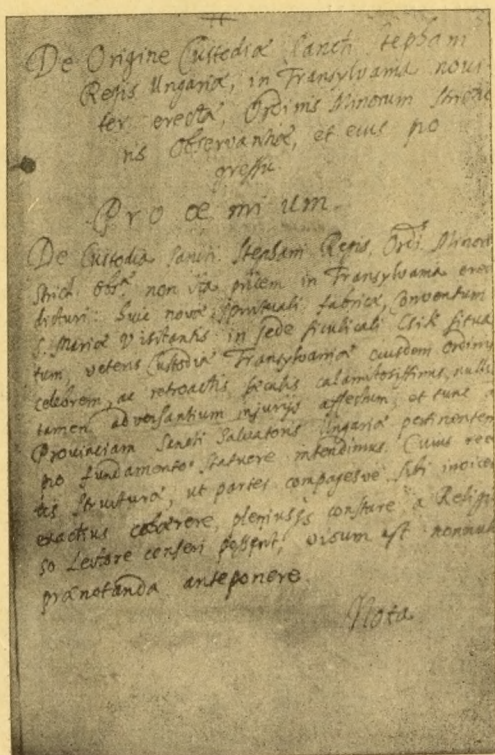 De Origine Custodiæ Sancti Stephani
Regis Ungariæ, in Transylvania novi
ter erecta, Ordinis Minorum Stricti
ris Observantiæ, et eius pro
gressu.
Prooemium.
De Custodia Sancti Stephani Regis, Ord. Minor
Strict. Obs. non ita pridem in Transylvania erec
dicturi: huic novæ spirituali fabricæ, Conventum
S. Mariæ Visitantis in sede siculicali Csik situa
tum, veteris Custodiæ Transylvaniæ eiusdem Ordinis
celebrem, ac retroactis seculis calamitosissimus, nullis
tamen adversantium injurijs affectum, et tunc
Provinciam Sancti Salvatoris Ungariæ pertinentem
pro fundamento statuere intendimus. Cuius rec
tis structuræ, ut partes compagesve sibi invicem
exactius cohærere, pleniusqs constare a Religi
so Lectore censeri possent, visum est nonnul
prænotanda anteponere.
Nota